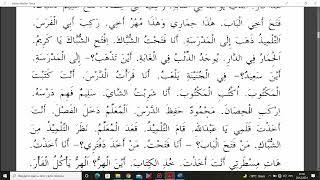 فَتَحَ أَخِي الْبَابَ. هٰذَا حِمَارِي وَهٰذَا مُهْرُ أَخِي. رَكِبَ أَبِي الْفَرَسَ.
التِّلْمِيذُ ذَهَبَ إِلَى الْمَدْرَسَةِ. أَنَا فَتَحْتُ الشُّبَّاكَ. اِفْتَحِ الشُّبَّاكَ يَا كَرِيمُ.
الْحِمَارُ فِي الدَّارِ. يُوجَدُ الذِّئْبُ فِي الْغَابَةِ. أَيْنَ تَذْهَبُ؟ – إِلَى الْمَدْرَسَةِ.
أَيْنَ سَعِيدٌ؟ – فِي الْجُنَيْنَةِ يَلْعَبُ. أَنَا قَرَأْتُ الدَّرْسَ. أَنْتَ كَتَبْتَ
الْمَكْتُوبَ. أَخَذْتُ الْمَكْتُوبَ. أَنَا شَرِبْتُ الشَّايَ. سَلِيمٌ فَهِمَ دَرْسَهُ.
اِرْكَبِ الْحِصَانَ. مَحْمُودٌ حَفِظَ الدَّرْسَ. اَلْمُعَلِّمُ دَخَلَ الْفَصْلَ. أَنْتَ
أَخَذْتَ قَلَمِي يَا عَبْدَاللهِ. قَامَ التِّلْمِيذُ. قَعَدَ الْمُعَلِّمُ. نَظَرَ التِّلْمِيذُ
مِنَ الشُّبَّاكِ. مَنْ فَتَحَ الْبَابَ؟ – أَنَا فَتَحْتُ. مَنْ أَخَذَ دَفْتَرِي؟ – أَنَا أَخَذْتُ.
هَاتِ مِسْطَرَتِي أَنْتَ أَخَذْتَ. خُذِ الْكِتَابَ. أَيْنَ الْهِرُّ؟ الْهِرُّ يَأْكُلُ الْفَأْرَ.